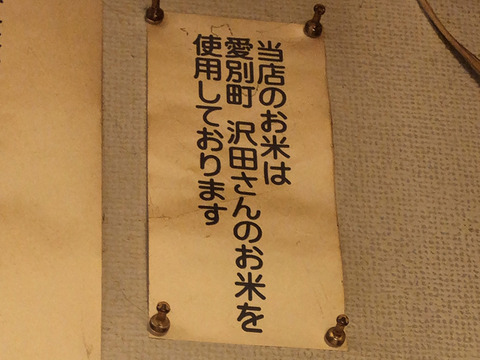 当店のお米は
愛別町 沢田さんのお米を
使用しております